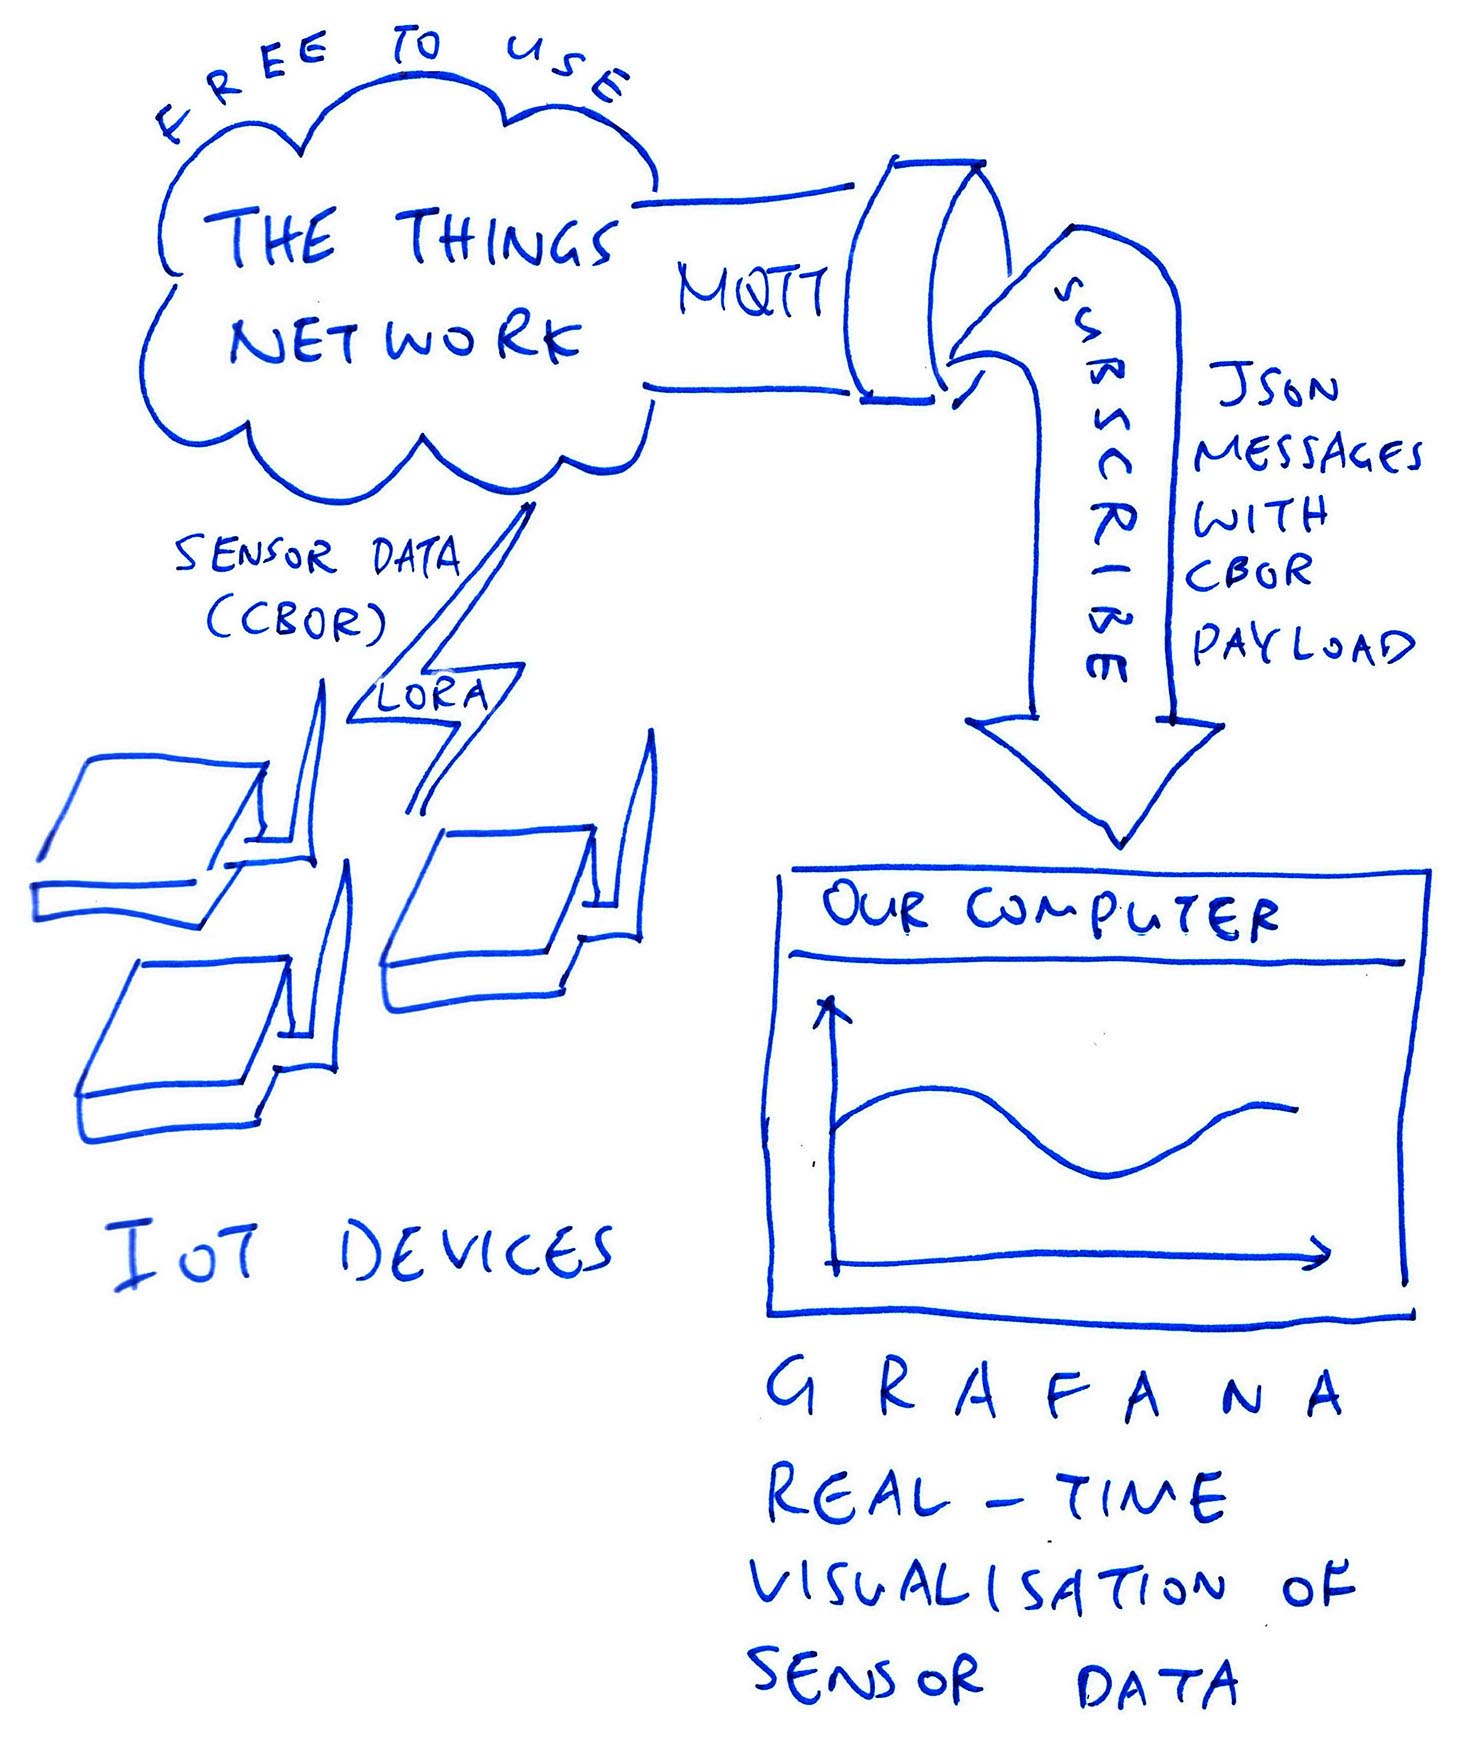 FREE TO USE
THE THINGS
NETWORK
MQTT
SUBSCRIBE
JSON
MESSAGES
WITH
CBOR
PAYLOAD
SENSOR DATA
(CBOR)
LORA
IOT DEVICES
OUR COMPUTER
GRAFANA
REAL-TIME
VISUALISATION OF
SENSOR DATA